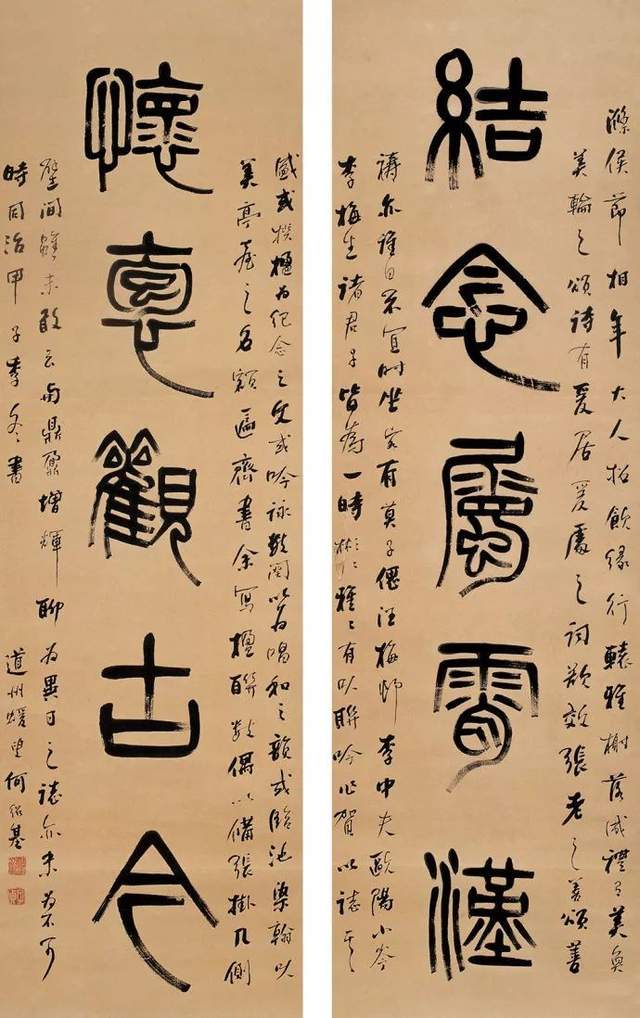 滌侯節相年大人招飲緣行轅雅榭落成禮美奐
美輪之頌詩有爰居爰處之詞欲效張老之善頌善
結念屬霄漢
禱亦誰曰不宜時坐客有莫子偲汪梅邨李中夫歐陽小岑
李梅生諸君子皆為一時彬彬雅雅有以聯吟作賀以誌其
盛或撰楹為紀念之文或吟詠數闋以為唱和之韻或臨池染翰以
美亭臺之名額遍齋書余寫楹聯數偶以備張掛几側
懷袌觀古今
壁間雖未敢云與鼎鼐增輝聊為異日之誌亦未為不可
時同治甲子季冬書
道州蝯叟何紹基